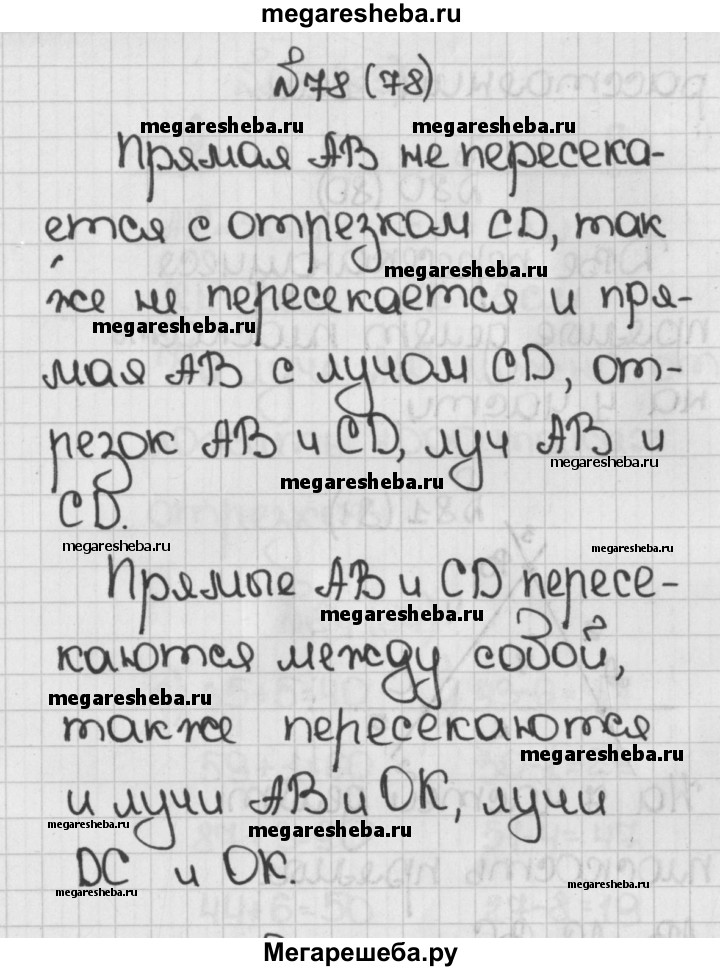 megaresheba.ru
№78 (78)
megaresheba.ru megaresheba.ru
Прямая AB не пересека-
ется с отрезком CD, так
megaresheba.ru
же не пересекается и пря-
megaresheba.ru
мая AB с лучом CD, от-
резок AB и CD, луч AB и
megaresheba.ru
megaresheba.ru
CD.
megaresheba.ru megaresheba.ru
Прямые AB и CD пересе-
megaresheba.ru
каются между собой,
megaresheba.ru
также пересекаются
megaresheba.ru
и лучи AB и OK, лучи
megaresheba.ru megaresheba.ru
DC и OK.
megaresheba.ru megaresheba.ru
Мегарешеба.ру